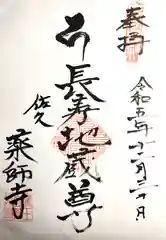 奉拝
令和五年十二月三十日
長寿地蔵尊
佐久
薬師寺